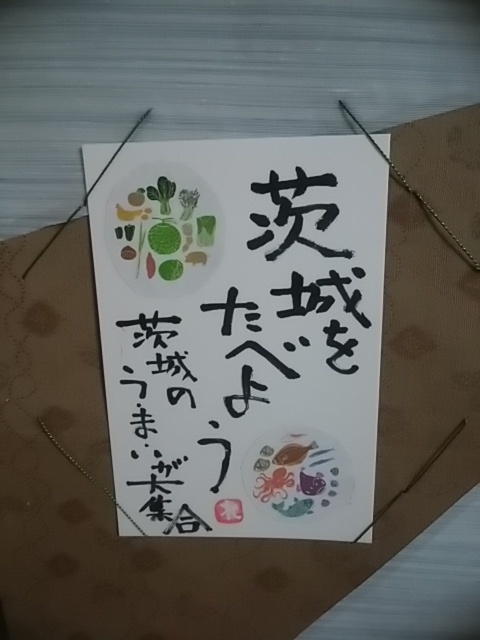 茨城を
たべよう
茨城の
うまいが大集合